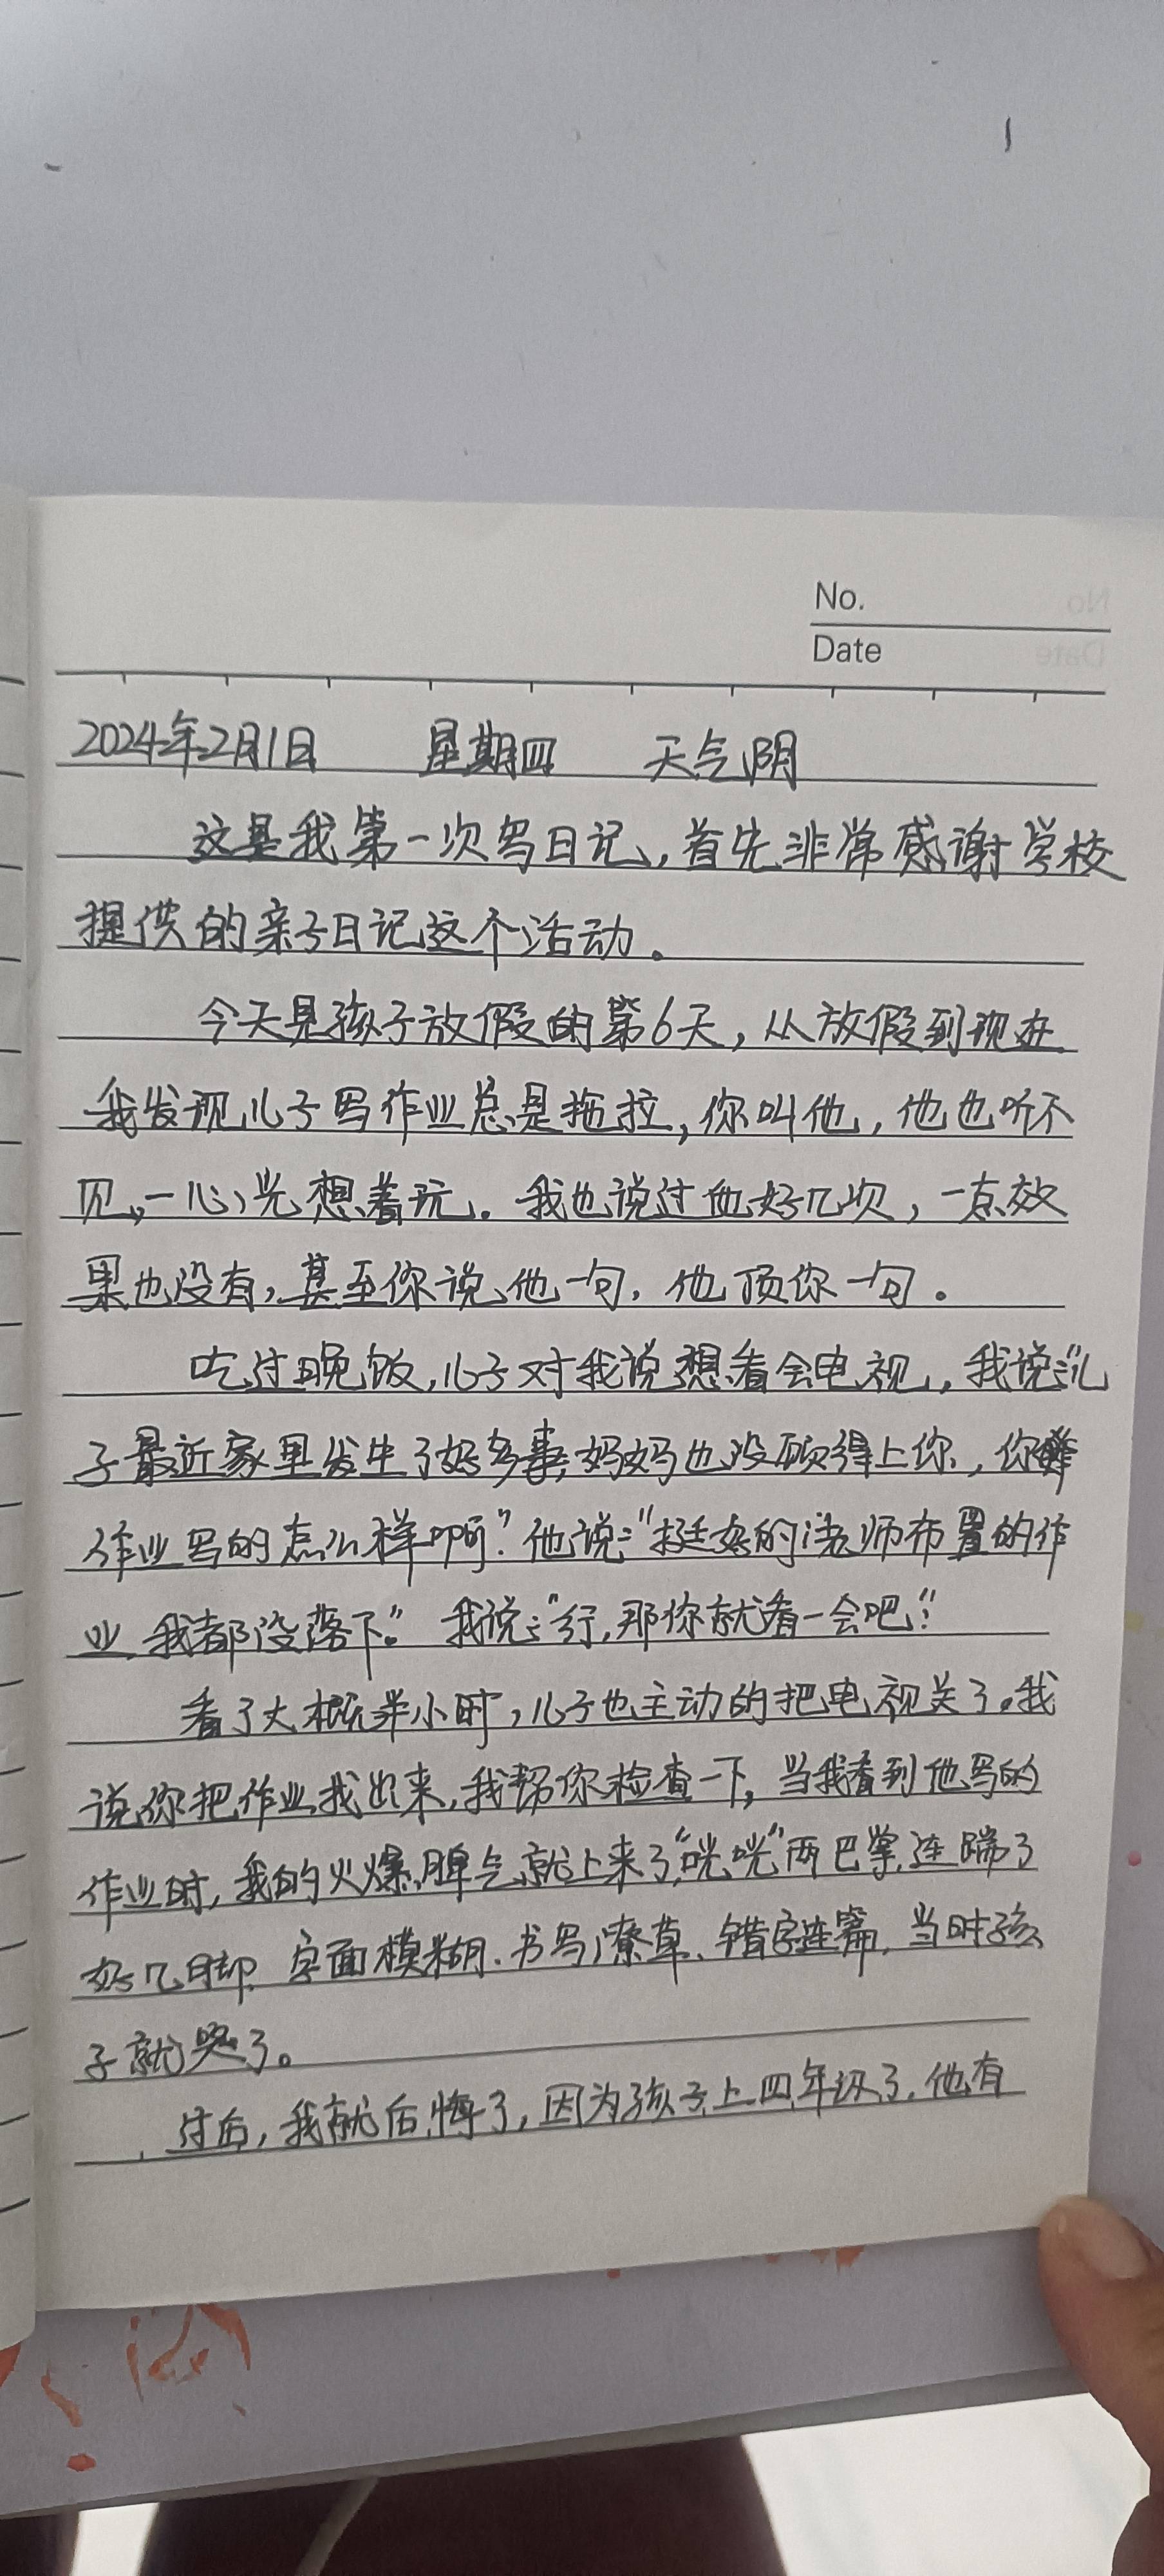 No.
Date
2024年2月1日 星期四 天气阴
这是我第一次写日记，首先非常感谢学校
提供的亲子日记这个活动。
今天是孩子放假的第6天，从放假到现在
我发现儿子写作业总是拖拉，你叫他，他也听不
见，一心光想着玩。我也说过他好几次，一点效
果也没有，甚至你说他一句，他顶你一句。
吃过晚饭，儿子对我说想看会电视，我说：“儿
子最近家里发生了好多事，妈妈也没顾得上你，你
作业写的怎么样啊”他说：“挺好的，老师布置的作
业，我都没落下。”我说：“行，那你就看一会吧！”
看了大概半小时，儿子也主动的把电视关了。我
说，你把作业找出来，我帮你检查一下，当我看到他写的
作业时，我的火爆脾气就上来了，“咣咣”两巴掌，连踹了
好几脚，字面模糊、书写潦草、错字连篇，当时孩
子就哭了。
过后，我就后悔了，因为孩子上四年级了，他有